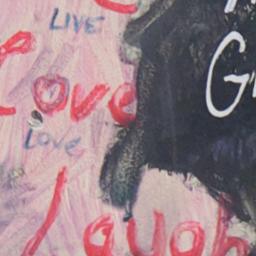 LIVE
Love
G
Love
Laugh